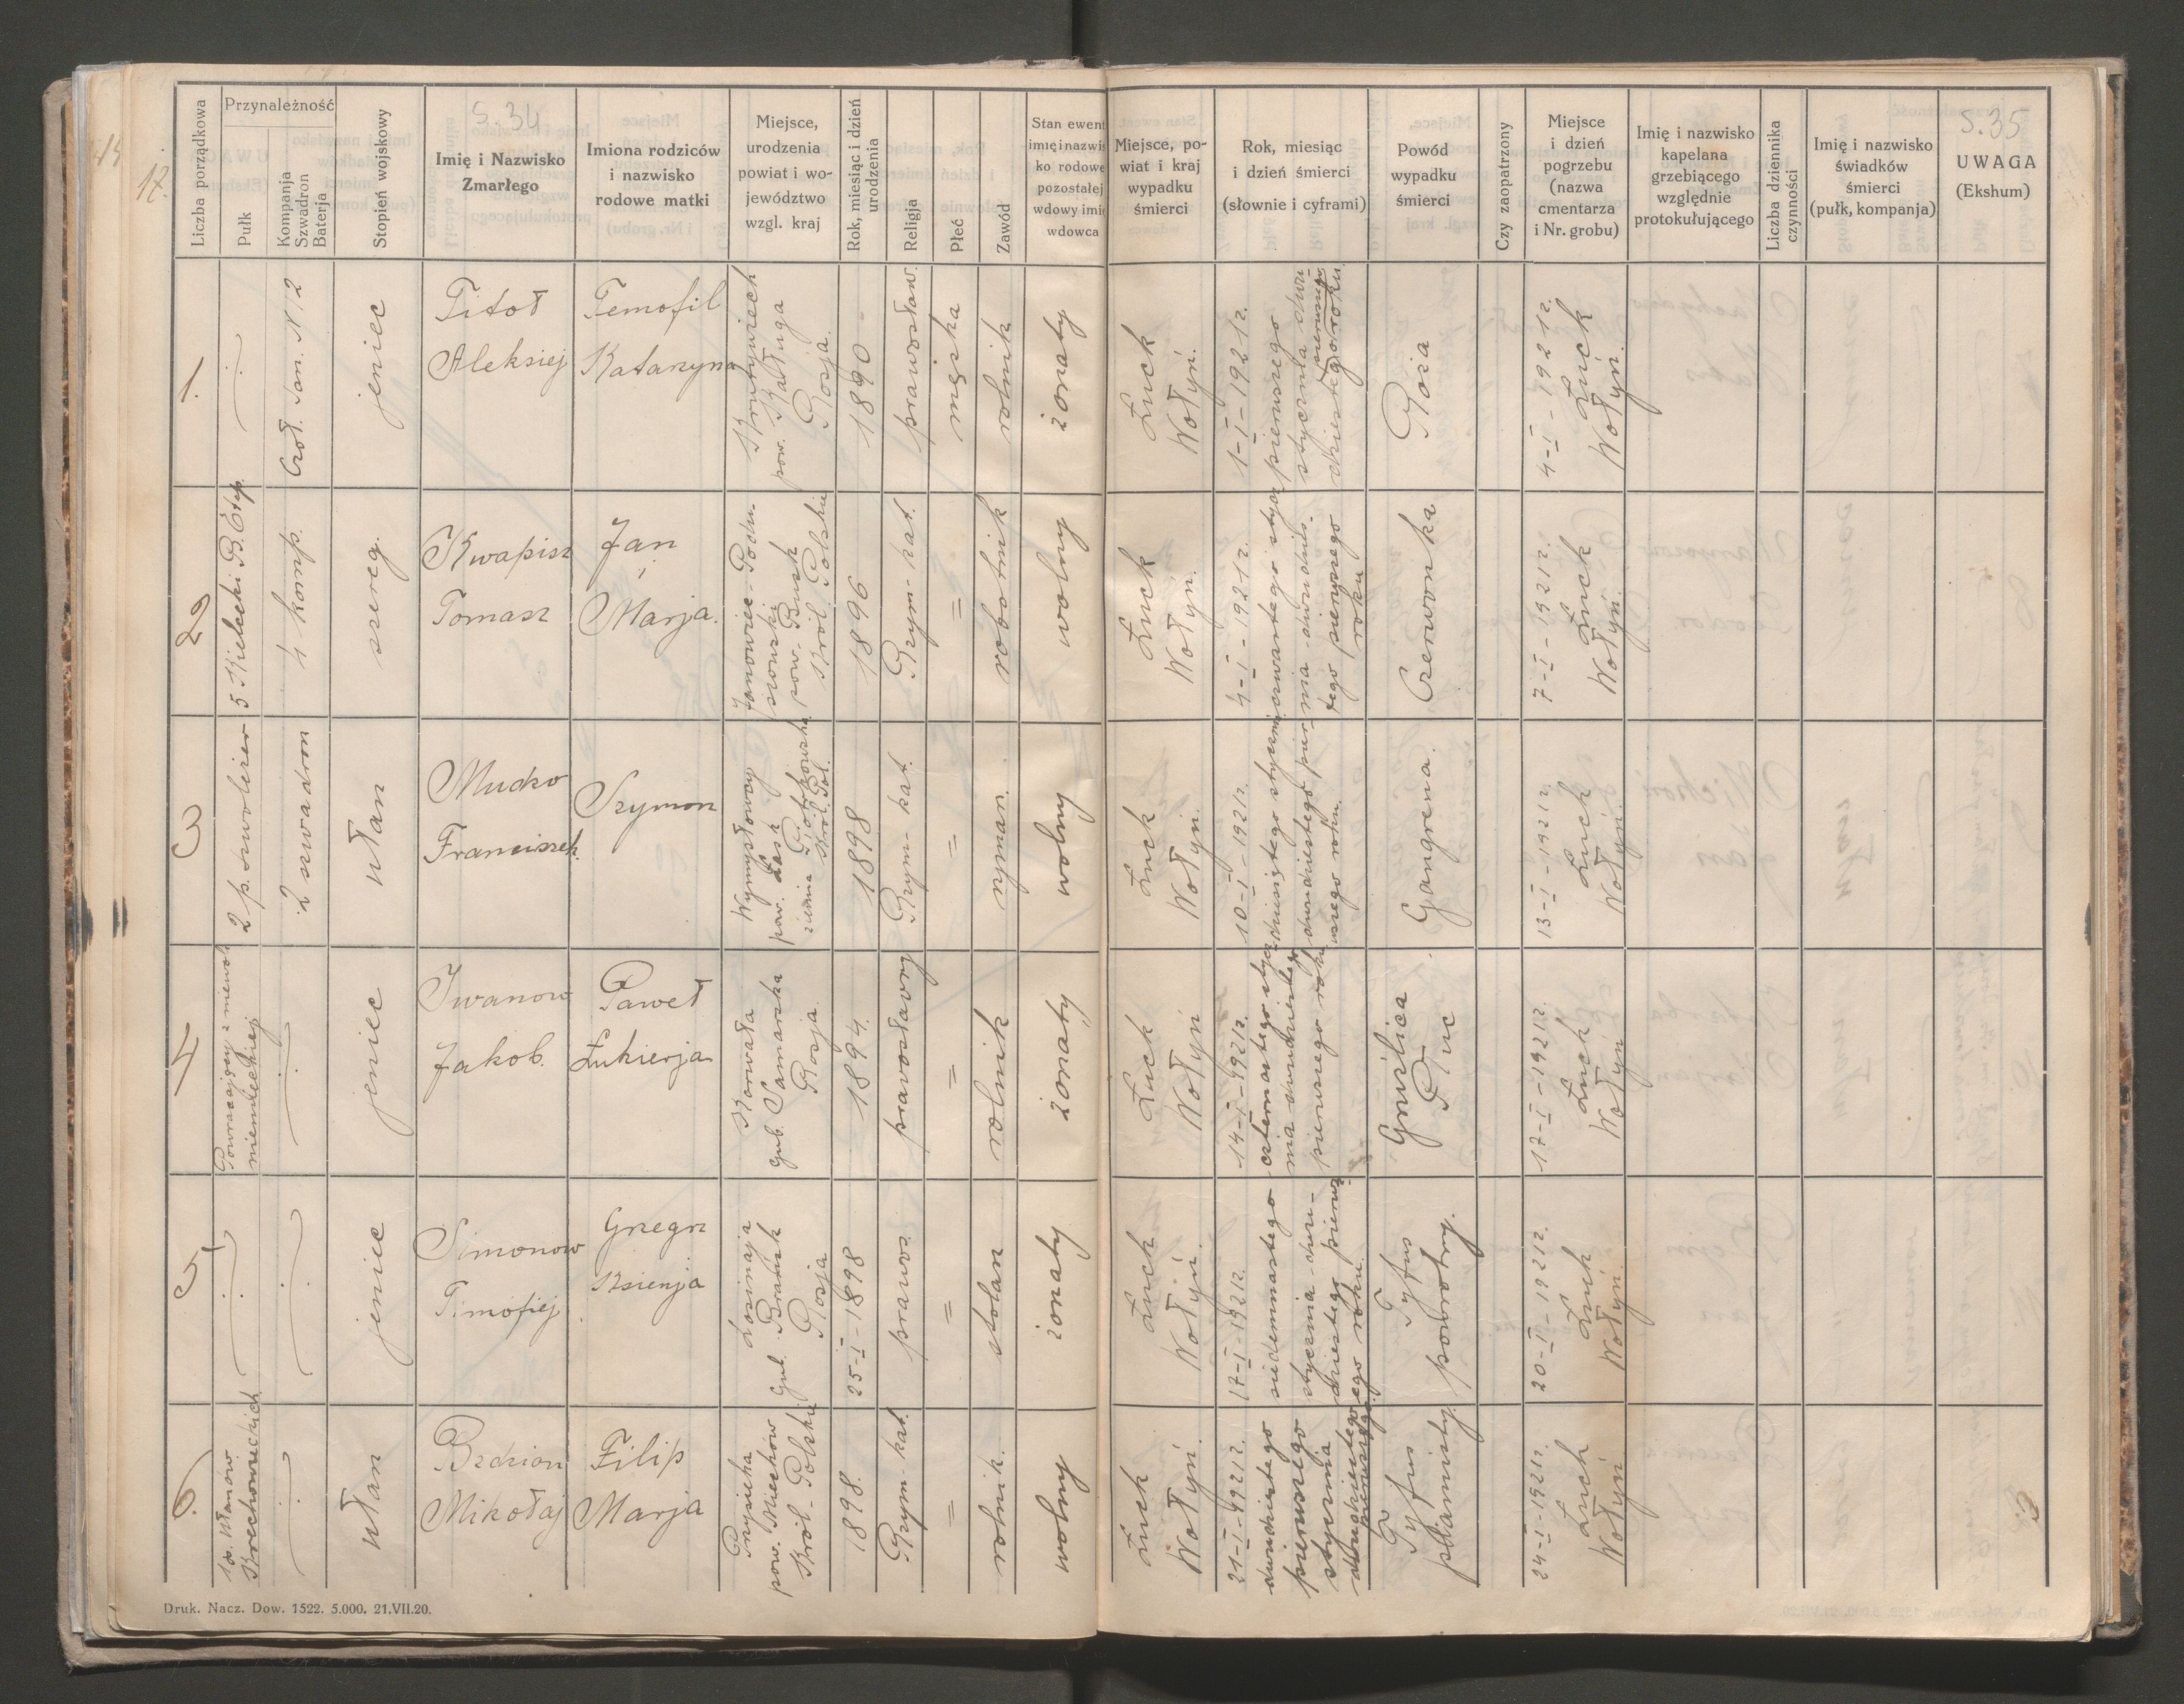 17.
S. 34
S. 35
Liczba porządkowa
Przynależność
Pułk
Kompanja
Szwadron
Baterja
Stopień wojskowy
Imię i Nazwisko
Zmarłego
Imiona rodziców
i nazwisko
rodowe matki
Miejsce,
urodzenia
powiat i wo-
jewództwo
wzgl. kraj
Rok, miesiąc i dzień
urodzenia
Religja
Płeć
Zawód
Stan ewent
imię i nazwis
ko rodowe
pozostałej
wdowy imię
wdowca
Miejsce, po-
wiat i kraj
wypadku
śmierci
Rok, miesiąc
i dzień śmierci
(słownie i cyframi)
Powód
wypadku
śmierci
Czy zaopatrzony
Miejsce
i dzień
pogrzebu
(nazwa
cmentarza
i Nr. grobu)
Imię i nazwisko
kapelana
grzebiącego
względnie
protokułującego
Liczba dziennika
czynności
Imię i nazwisko
świadków
śmierci
(pułk, kompanja)
UWAGA
(Ekshum)
1.
Czoł. San. N 12
jeniec
Titoł
Aleksiej
Temofil
Katarzyna
pow. Kaługa
Rosja
1890
prawosław.
męska
rolnik
żonaty
Łuck
Wołyń.
1-I-1921r.
pierwszego
stycznia dwu-
dziestego
pierwszego
roku
Roża
4-I-1921r.
Łuck
Wołyń.
2.
5 Kielecki B. Etap.
4 komp.
szereg.
Kwapisz
Tomasz
Jan
Marja.
Janowiec-Podu-
szowski
pow. Busk
Król. Polskie
1896
Rzym-kat.
=
robotnik
wolny
Łuck
Wołyń.
4-I-1921r.
czwartego stycz-
nia-dwudzies-
tego pierwszego
roku
Czerwonka
7-I-1921r.
Łuck
Wołyń.
3
2 p. szwoleżer
2 szwadron
ułan
Mucko
Franciszek.
Szymon
Wymysłowy
pow. Łask
ziemia Piotrkowska
Król. Pol.
1898
Rzym-kat.
=
ryman.
wolny
Łuck
Wołyń.
10-I-1921r.
dziesiątego stycznia
dwudziestego pier-
wszego roku.
Gangrena.
13-I-1921r.
Łuck
Wołyń.
4
Powracający z niewoli
niemieckiej
jeniec
Iwanow
Jakob.
Paweł
Łukierja
gub. Samarska
Rosja
1894.
prawosławny
=
rolnik
żonaty
Łuck
Wołyń
14-I-1921r.
czternastego stycz-
nia dwudziestego
pierwszego roku
Gruźlica
Płuc
17-I-1921r.
Łuck
Wołyń
5
jeniec
Simonow
Timofiej
Grzegrz
Ksienja
gub. Brańsk
Rosja
25-I-1898
prawos.
=
stolarz
żonaty
Łuck
Wołyń.
17-I-1921r.
siedemnastego
stycznia-dwu-
dziestego pierwsz-
ego roku.
Tyfus
powrotny.
20-I-1921r.
Łuck
Wołyń.
6.
1 p. Ułanów
Krechowieckich
ułan
Bzdzion
Mikołaj
Filip
Marja
Przysieka
pow. Miechów
Król-Polskie
1898.
Rzym-kat.
=
rolnik.
wolny
Łuck
Wołyń.
21-I-1921r.
dwudziestego
pierwszego
stycznia
dwudziestego
pierwszego.
Tyfus
plamisty.
24-I-1921r.
Łuck
Wołyń.
Druk. Nacz. Dow. 1522. 5.000. 21.VII.20.